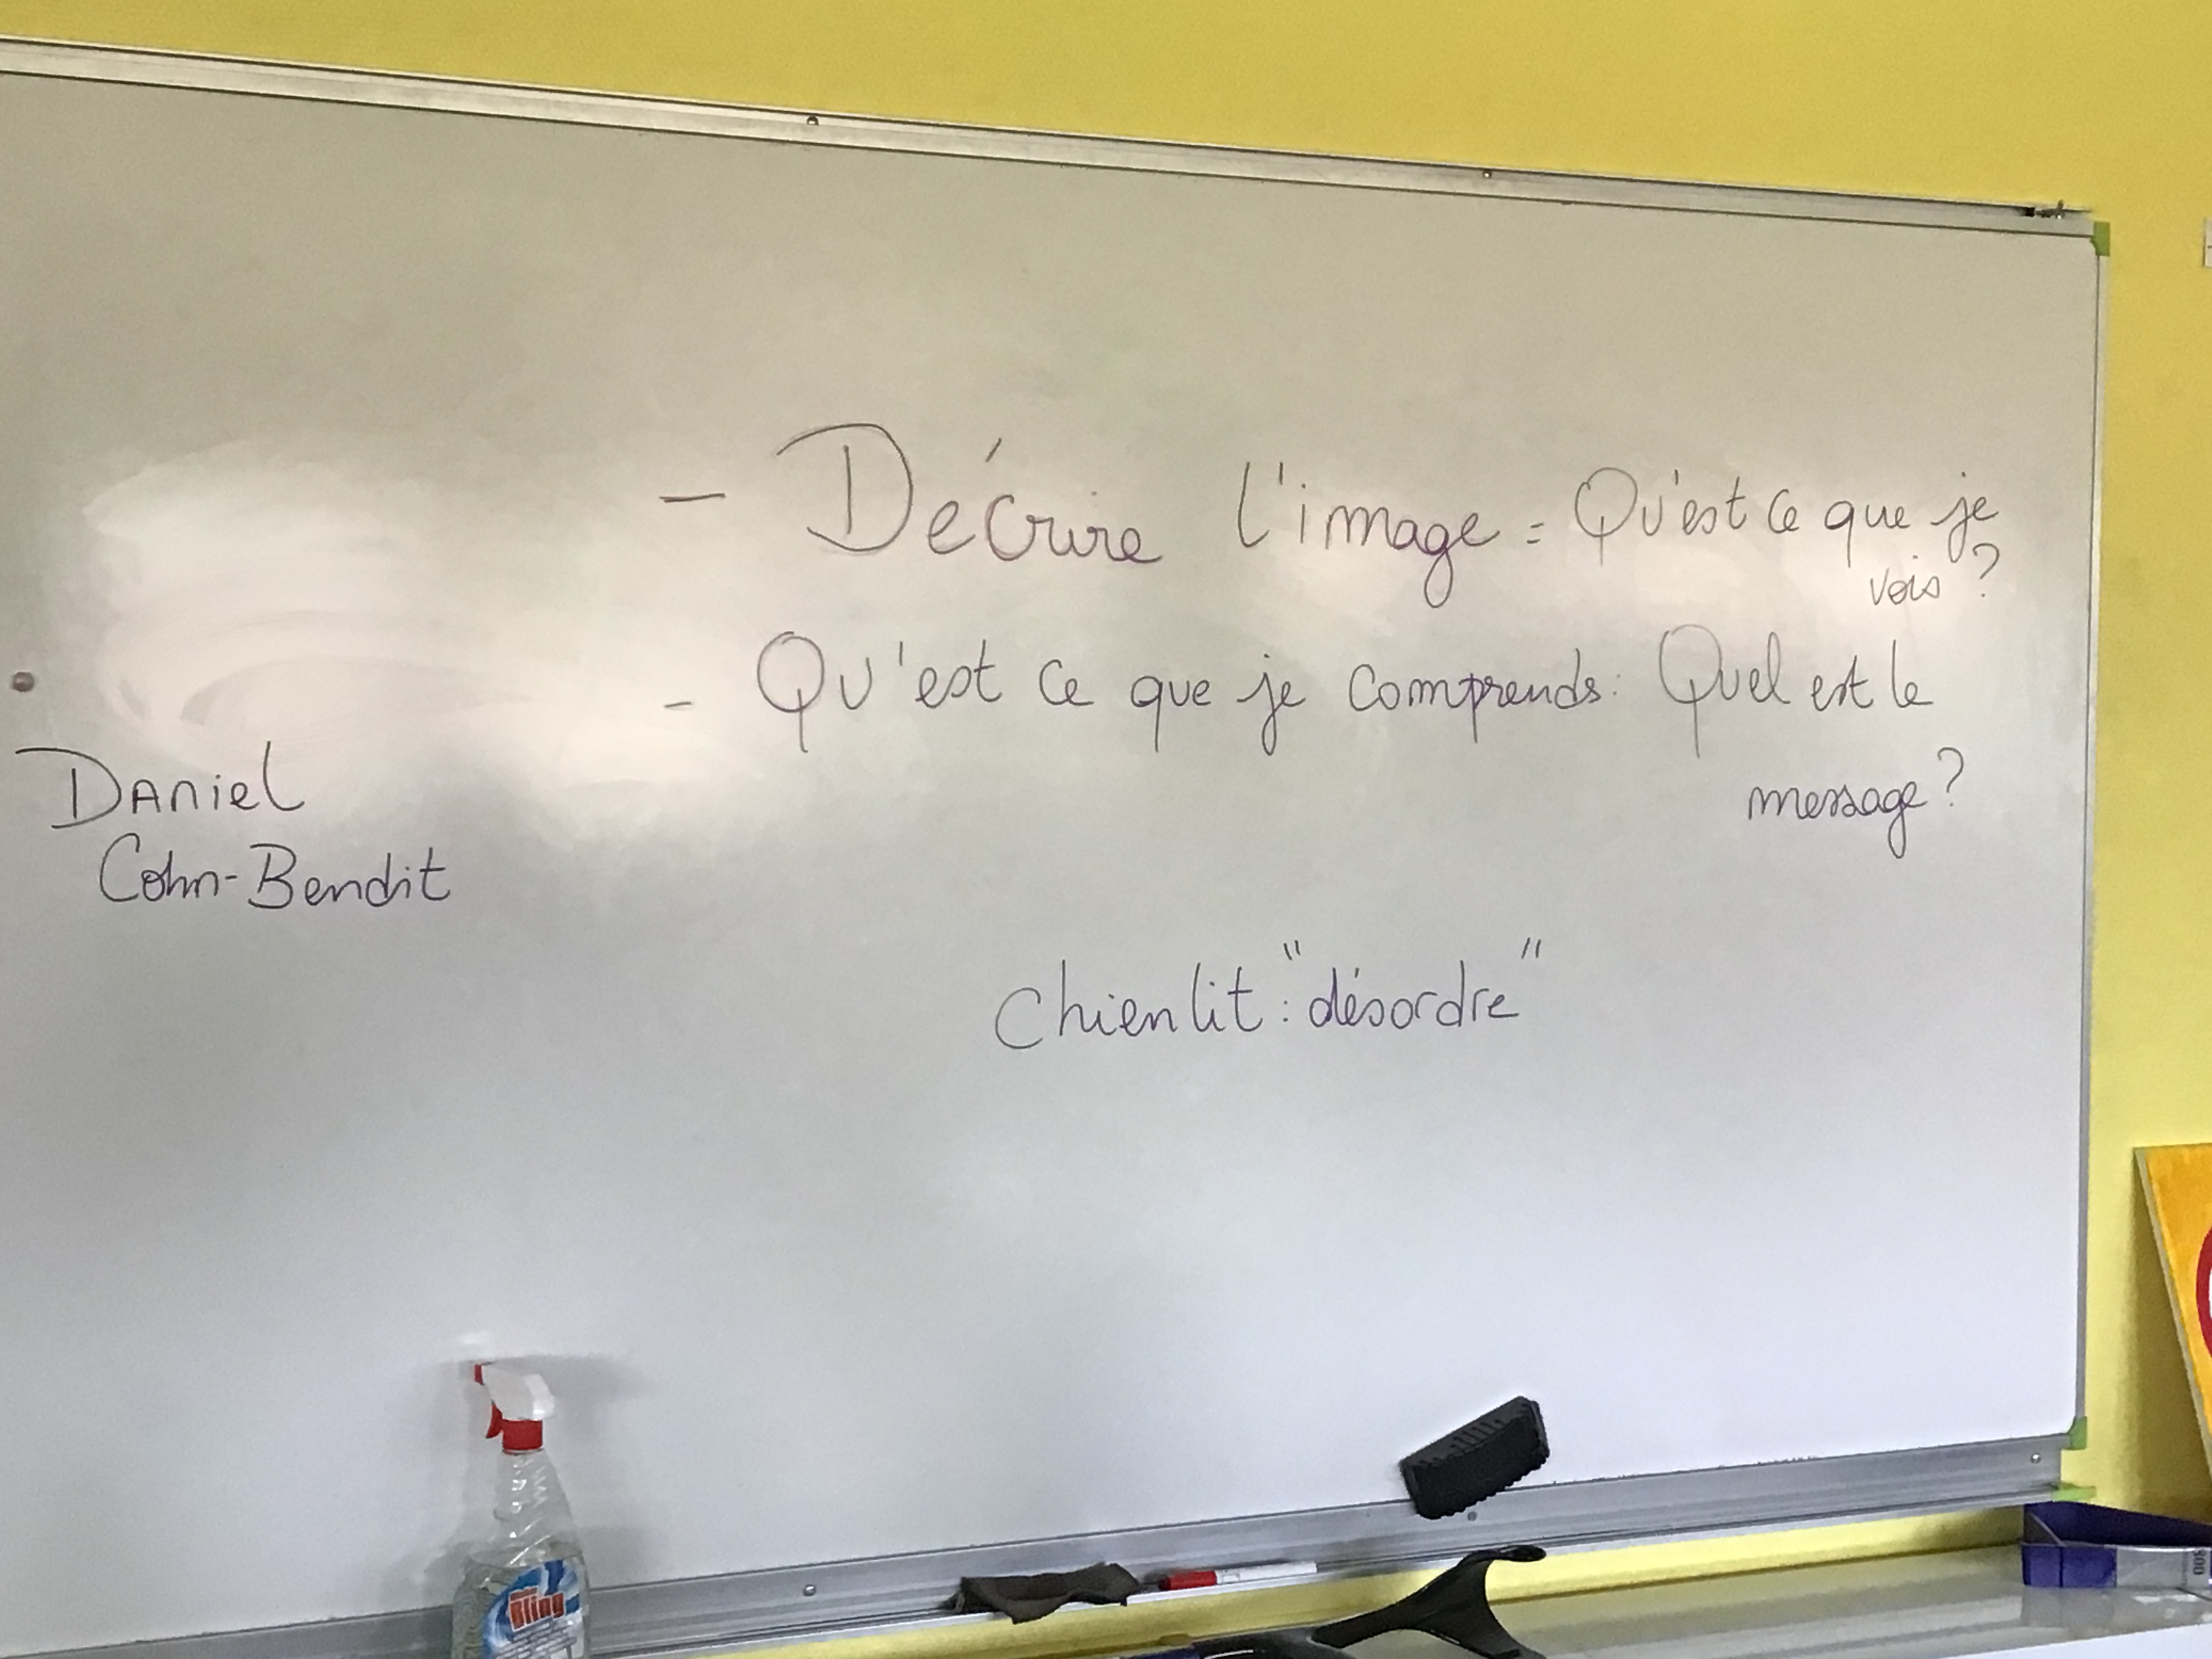 - Décrire l'image = Qu'est ce que je
vois ?
- Qu'est ce que je comprends : Quel est le
message ?
Daniel
Cohn-Bendit
Chienlit : "désordre"
Bling